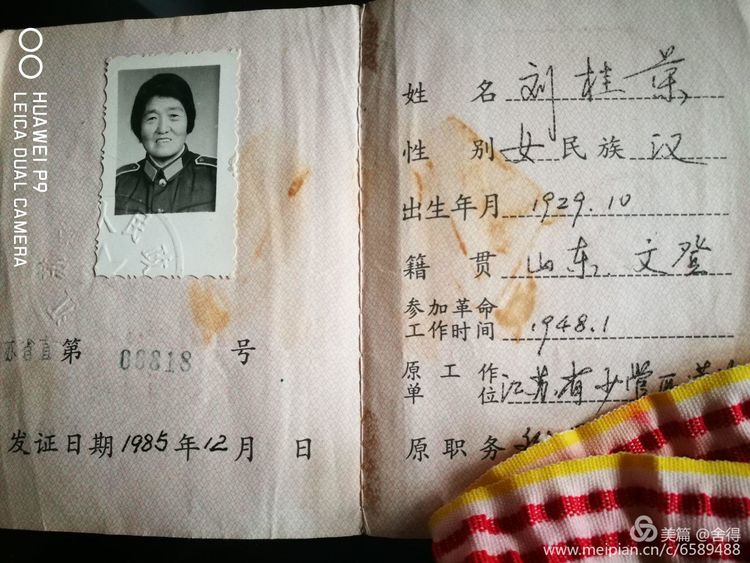 HUAWEI P9
LEICA DUAL CAMERA
苏省直第 00818 号
发证日期 1985年12月 日
姓名 刘桂荣
性别 女 民族 汉
出生年月 1929.10
籍贯 山东 文登
参加革命工作时间 1948.1
原工作单位 江苏省
原职务
美篇 @舍得
www.meipian.cn/c/6589488